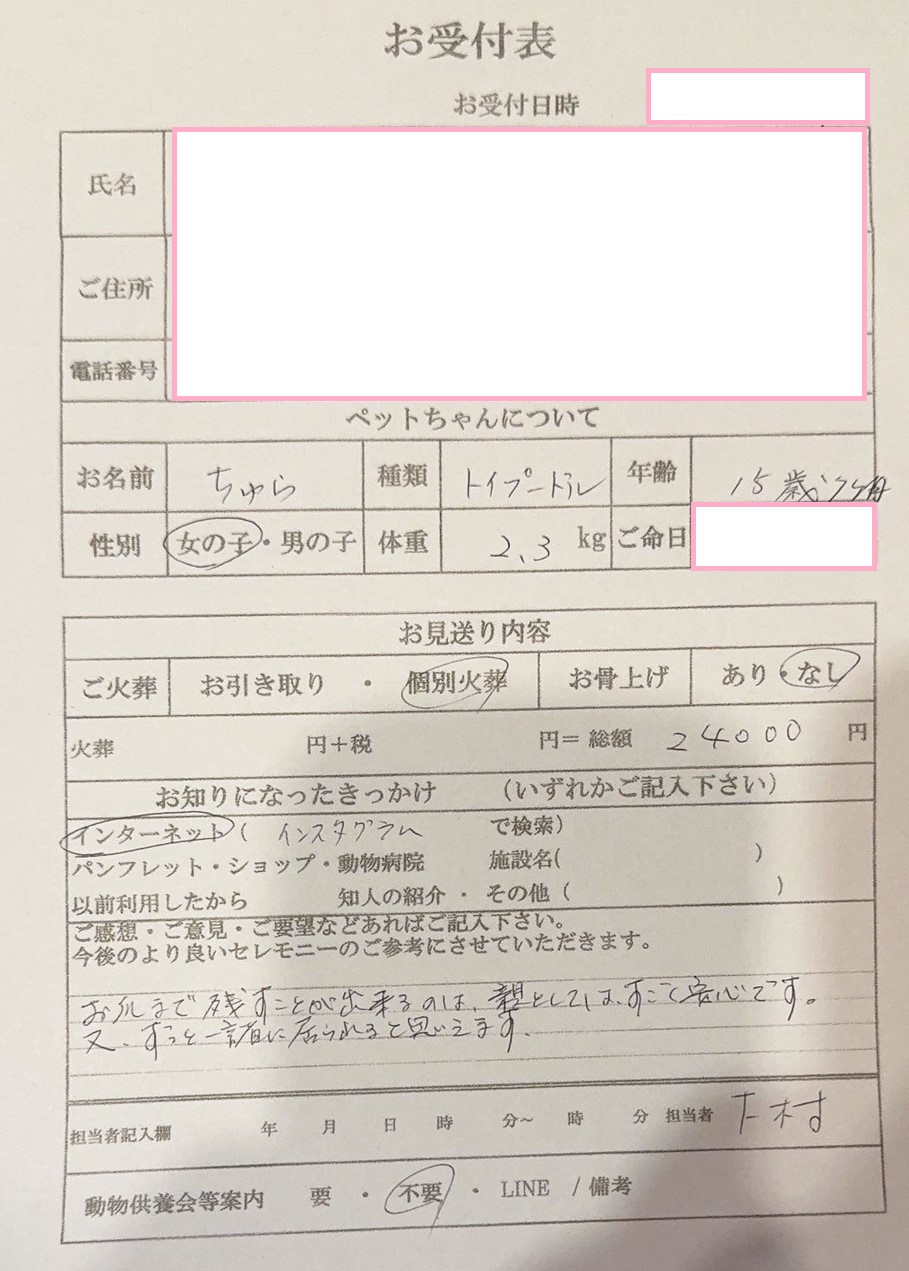 お受付表
お受付日時
氏名
ご住所
電話番号
ペットちゃんについて
お名前 ちゅら 種類 トイプードル 年齢 15歳7ヶ月
性別 女の子・男の子 体重 2.3 kg ご命日
お見送り内容
ご火葬 お引き取り ・ 個別火葬 お骨上げ あり・なし
火葬 円+税 円= 総額 24000 円
お知りになったきっかけ (いずれかご記入下さい)
インターネット( インスタグラム で検索)
パンフレット・ショップ・動物病院 施設名( )
以前利用したから 知人の紹介 ・ その他 ( )
ご感想・ご意見・ご要望などあればご記入下さい。
今後のより良いセレモニーのご参考にさせていただきます。
お爪まで残すことが出来るのは、親としては、すごく安心です。
又、ずっと一諸に居られると思います。
担当者記入欄 年 月 日 時 分~ 時 分 担当者 下村
動物供養会等案内 要 ・ 不要 ・ LINE / 備考